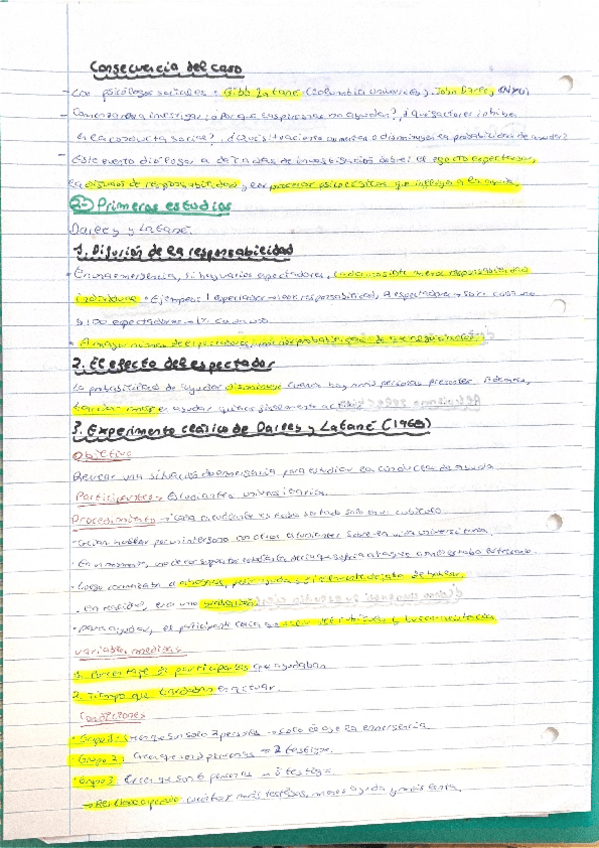 Consecuencia del caso
- Los psicólogos sociales: Bibb Latané (Columbia University), John Darley (NYU)
- Comenzaron a investigar: ¿Por qué las personas no ayudan?, ¿Qué factores inhiben
la conducta social? ¿Qué situaciones aumentan o disminuyen la probabilidad de ayudar?
- Este evento dio lugar a décadas de investigación sobre: el efecto espectador,
la difusión de responsabilidad y los procesos psicológicos que influyen en la ayuda.
2- Primeros estudios
Darley y Latané.
1. Difusión de la responsabilidad
- En una emergencia, si hay varios espectadores, cada uno siente menos responsabilidad
individual. Ejemplos: 1 espectador → 100% responsabilidad, espectadores → cada uno
100 espectadores → 1% cada uno.
- A mayor número de espectadores, menor probabilidad de que alguien
2. El efecto del espectador
La probabilidad de ayudar disminuye cuando hay más personas presentes. Además,
tardan más en ayudar quienes finalmente actúan.
3. Experimento clásico de Darley y Latané (1968)
Objetivo
Recrear una situación de emergencia para estudiar la conducta de ayuda
Participantes → Estudiantes universitarios.
Procedimiento → Cada estudiante estaba sentado solo en un cubículo
· Debían hablar por un intérfono con otros estudiantes sobre la vida universitaria.
· En un momento, uno de los supuestos estudiantes decía que sufría ataques
· Luego comenzaba a ahogarse, pedir ayuda y finalmente dejaba de hablar.
· En realidad, era una grabación.
· Para ayudar, el participante tenía que salir del cubículo y buscar
Variables medidas
1. Porcentaje de participantes que ayudaban
2. Tiempo que tardaban en actuar.
Condiciones
· Grupo 1: Cree que son solo 2 personas → solo él oye la emergencia
· Grupo 2: Cree que son 3 personas → 2 testigos.
· Grupo 3: Cree que son 6 personas → 5 testigos
cuantos más testigos, menos ayuda y más tarda.